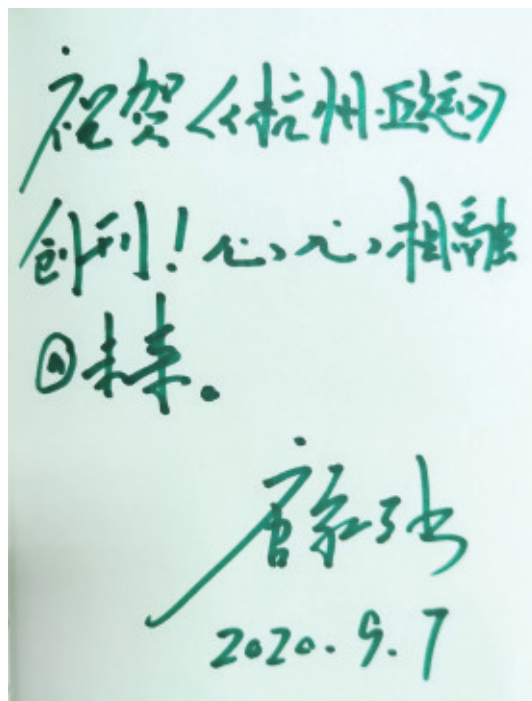 祝贺《杭州亚运》
创刊！心心相融
@未来。
2020.9.7